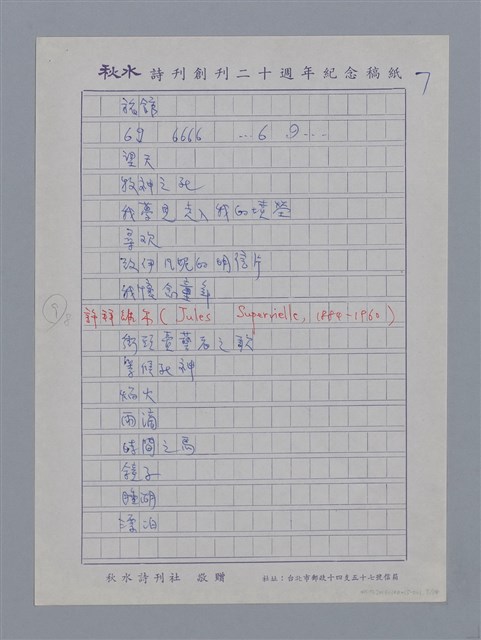 秋水詩刊創刊二十週年紀念稿紙
7
旅館
69 6666 ...6 9...
望天
牧神之死
我夢見走入我的墳塋
尋欢
致伊凡妮的明信片
我懷念童年
9
許拜維爾 (Jules Supervielle, 1884-1960)
街頭賣藝者之歌
等候死神
焰火
雨滴
時間之馬
鏡子
漂泊
秋水詩刊社 敬贈
社址：台北市郵政十四支三十七號信箱